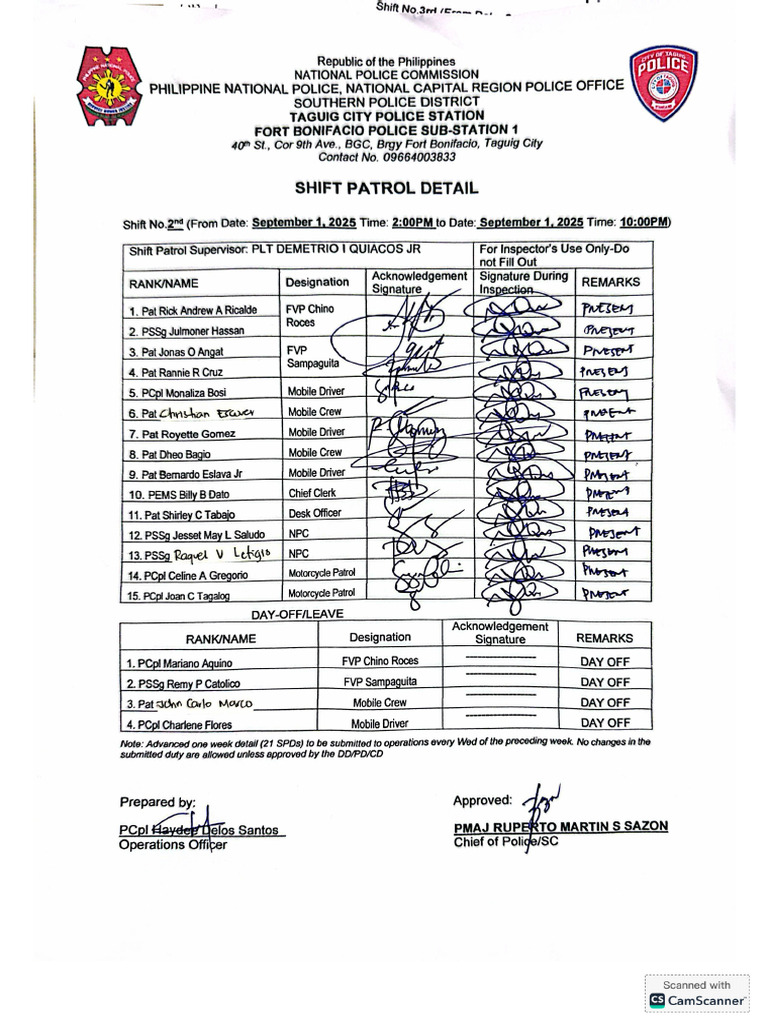 Shift No.3rd (From Date
PHILIPPINE NATIONAL POLICE
SERVICE HONOR JUSTICE
CITY OF TAGUIG
POLICE
Republic of the Philippines
NATIONAL POLICE COMMISSION
PHILIPPINE NATIONAL POLICE, NATIONAL CAPITAL REGION POLICE OFFICE
SOUTHERN POLICE DISTRICT
TAGUIG CITY POLICE STATION
FORT BONIFACIO POLICE SUB-STATION 1
40th St., Cor 9th Ave., BGC, Brgy Fort Bonifacio, Taguig City
Contact No. 09664003833
SHIFT PATROL DETAIL
Shift No.2nd (From Date: September 1, 2025 Time: 2:00PM to Date: September 1, 2025 Time: 10:00PM)
Shift Patrol Supervisor: PLT DEMETRIO I QUIACOS JR For Inspector's Use Only-Do not Fill Out
RANK/NAME Designation Acknowledgement Signature Signature During Inspection REMARKS
1. Pat Rick Andrew A Ricalde FVP Chino Roces PRESENT
2. PSSg Julmoner Hassan PRESENT
3. Pat Jonas O Angat FVP Sampaguita PRESENT
4. Pat Rannie R Cruz PRESENT
5. PCpl Monaliza Bosi Mobile Driver PRESENT
6. Pat Christian Mobile Crew PRESENT
7. Pat Royette Gomez Mobile Driver PRESENT
8. Pat Dheo Bagio Mobile Crew PRESENT
9. Pat Bernardo Eslava Jr Mobile Driver PRESENT
10. PEMS Billy B Dato Chief Clerk PRESENT
11. Pat Shirley C Tabajo Desk Officer PRESENT
12. PSSg Jesset May L Saludo NPC PRESENT
13. PSSg Raquel V NPC PRESENT
14. PCpl Celine A Gregorio Motorcycle Patrol PRESENT
15. PCpl Joan C Tagalog Motorcycle Patrol PRESENT
DAY-OFF/LEAVE
RANK/NAME Designation Acknowledgement Signature REMARKS
1. PCpl Mariano Aquino FVP Chino Roces DAY OFF
2. PSSg Remy P Catolico FVP Sampaguita DAY OFF
3. Pat John Carlo Marco Mobile Crew DAY OFF
4. PCpl Charlene Flores Mobile Driver DAY OFF
Note: Advanced one week detail (21 SPDs) to be submitted to operations every Wed of the preceding week. No changes in the
submitted duty are allowed unless approved by the DD/PD/CD
Prepared by: Approved:
PCpl Haydee Delos Santos PMAJ RUPERTO MARTIN S SAZON
Operations Officer Chief of Police/SC
Scanned with
CS CamScanner